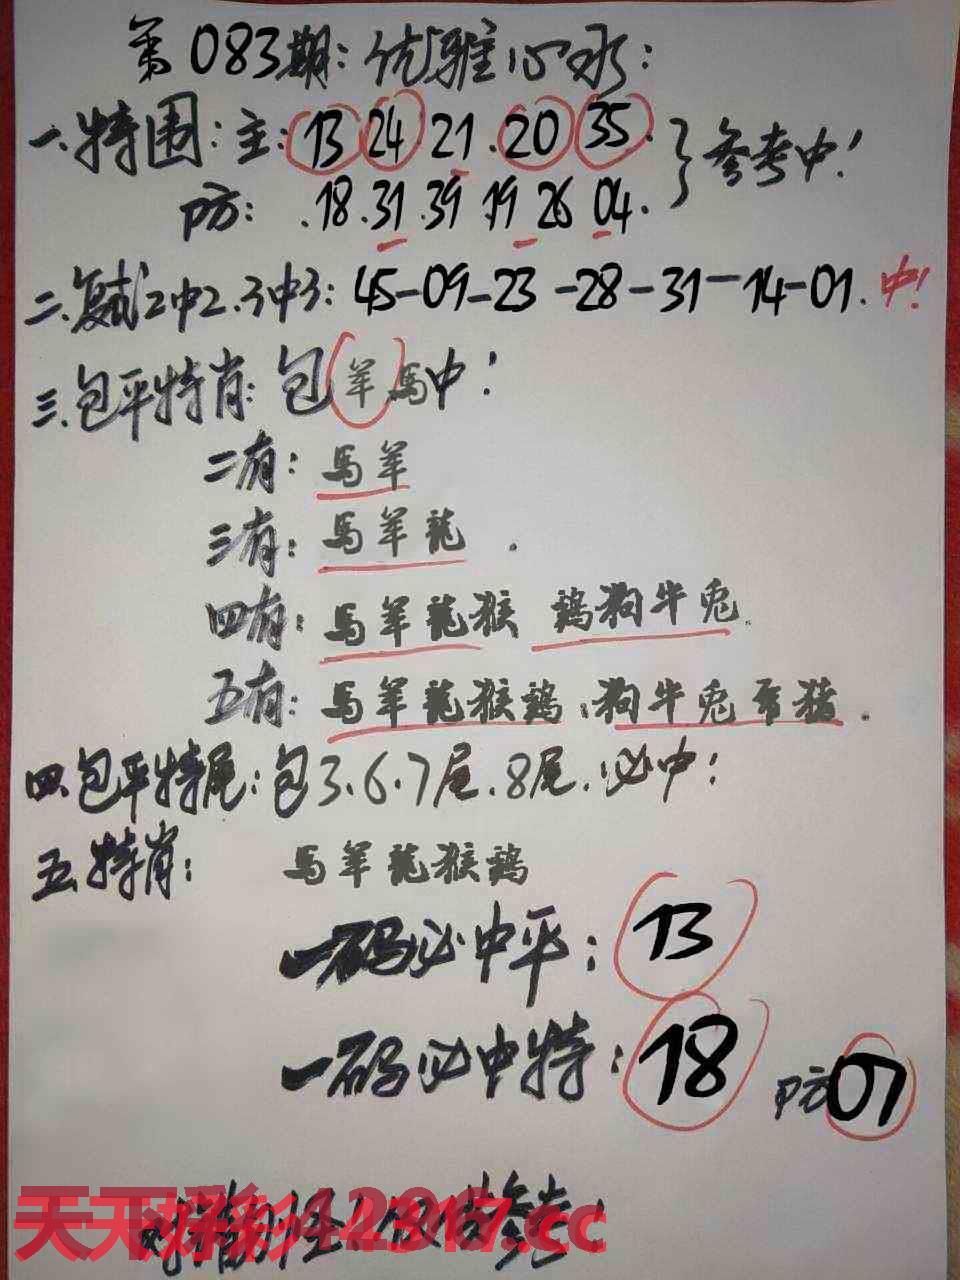 第083期：优雅心水：
一.特围：主：13 24 21.20 35.}参考中！
防：.18.31.39 19 26 04.
二.复试2中2.3中3：45-09-23-28-31-14-01.中！
三.包平特肖：包羊馬中！
二有：馬羊
三有：馬羊龍.
四有：馬羊龍猴 鷄狗牛兔.
五有：馬羊龍猴鷄、狗牛兔 猪.
四.包平特尾：包3.6.7尾.8尾.必中！
五.特肖：馬羊龍猴鷄
一码必中平：13
一码必中特：18 防07
天下彩 .cc
参考！